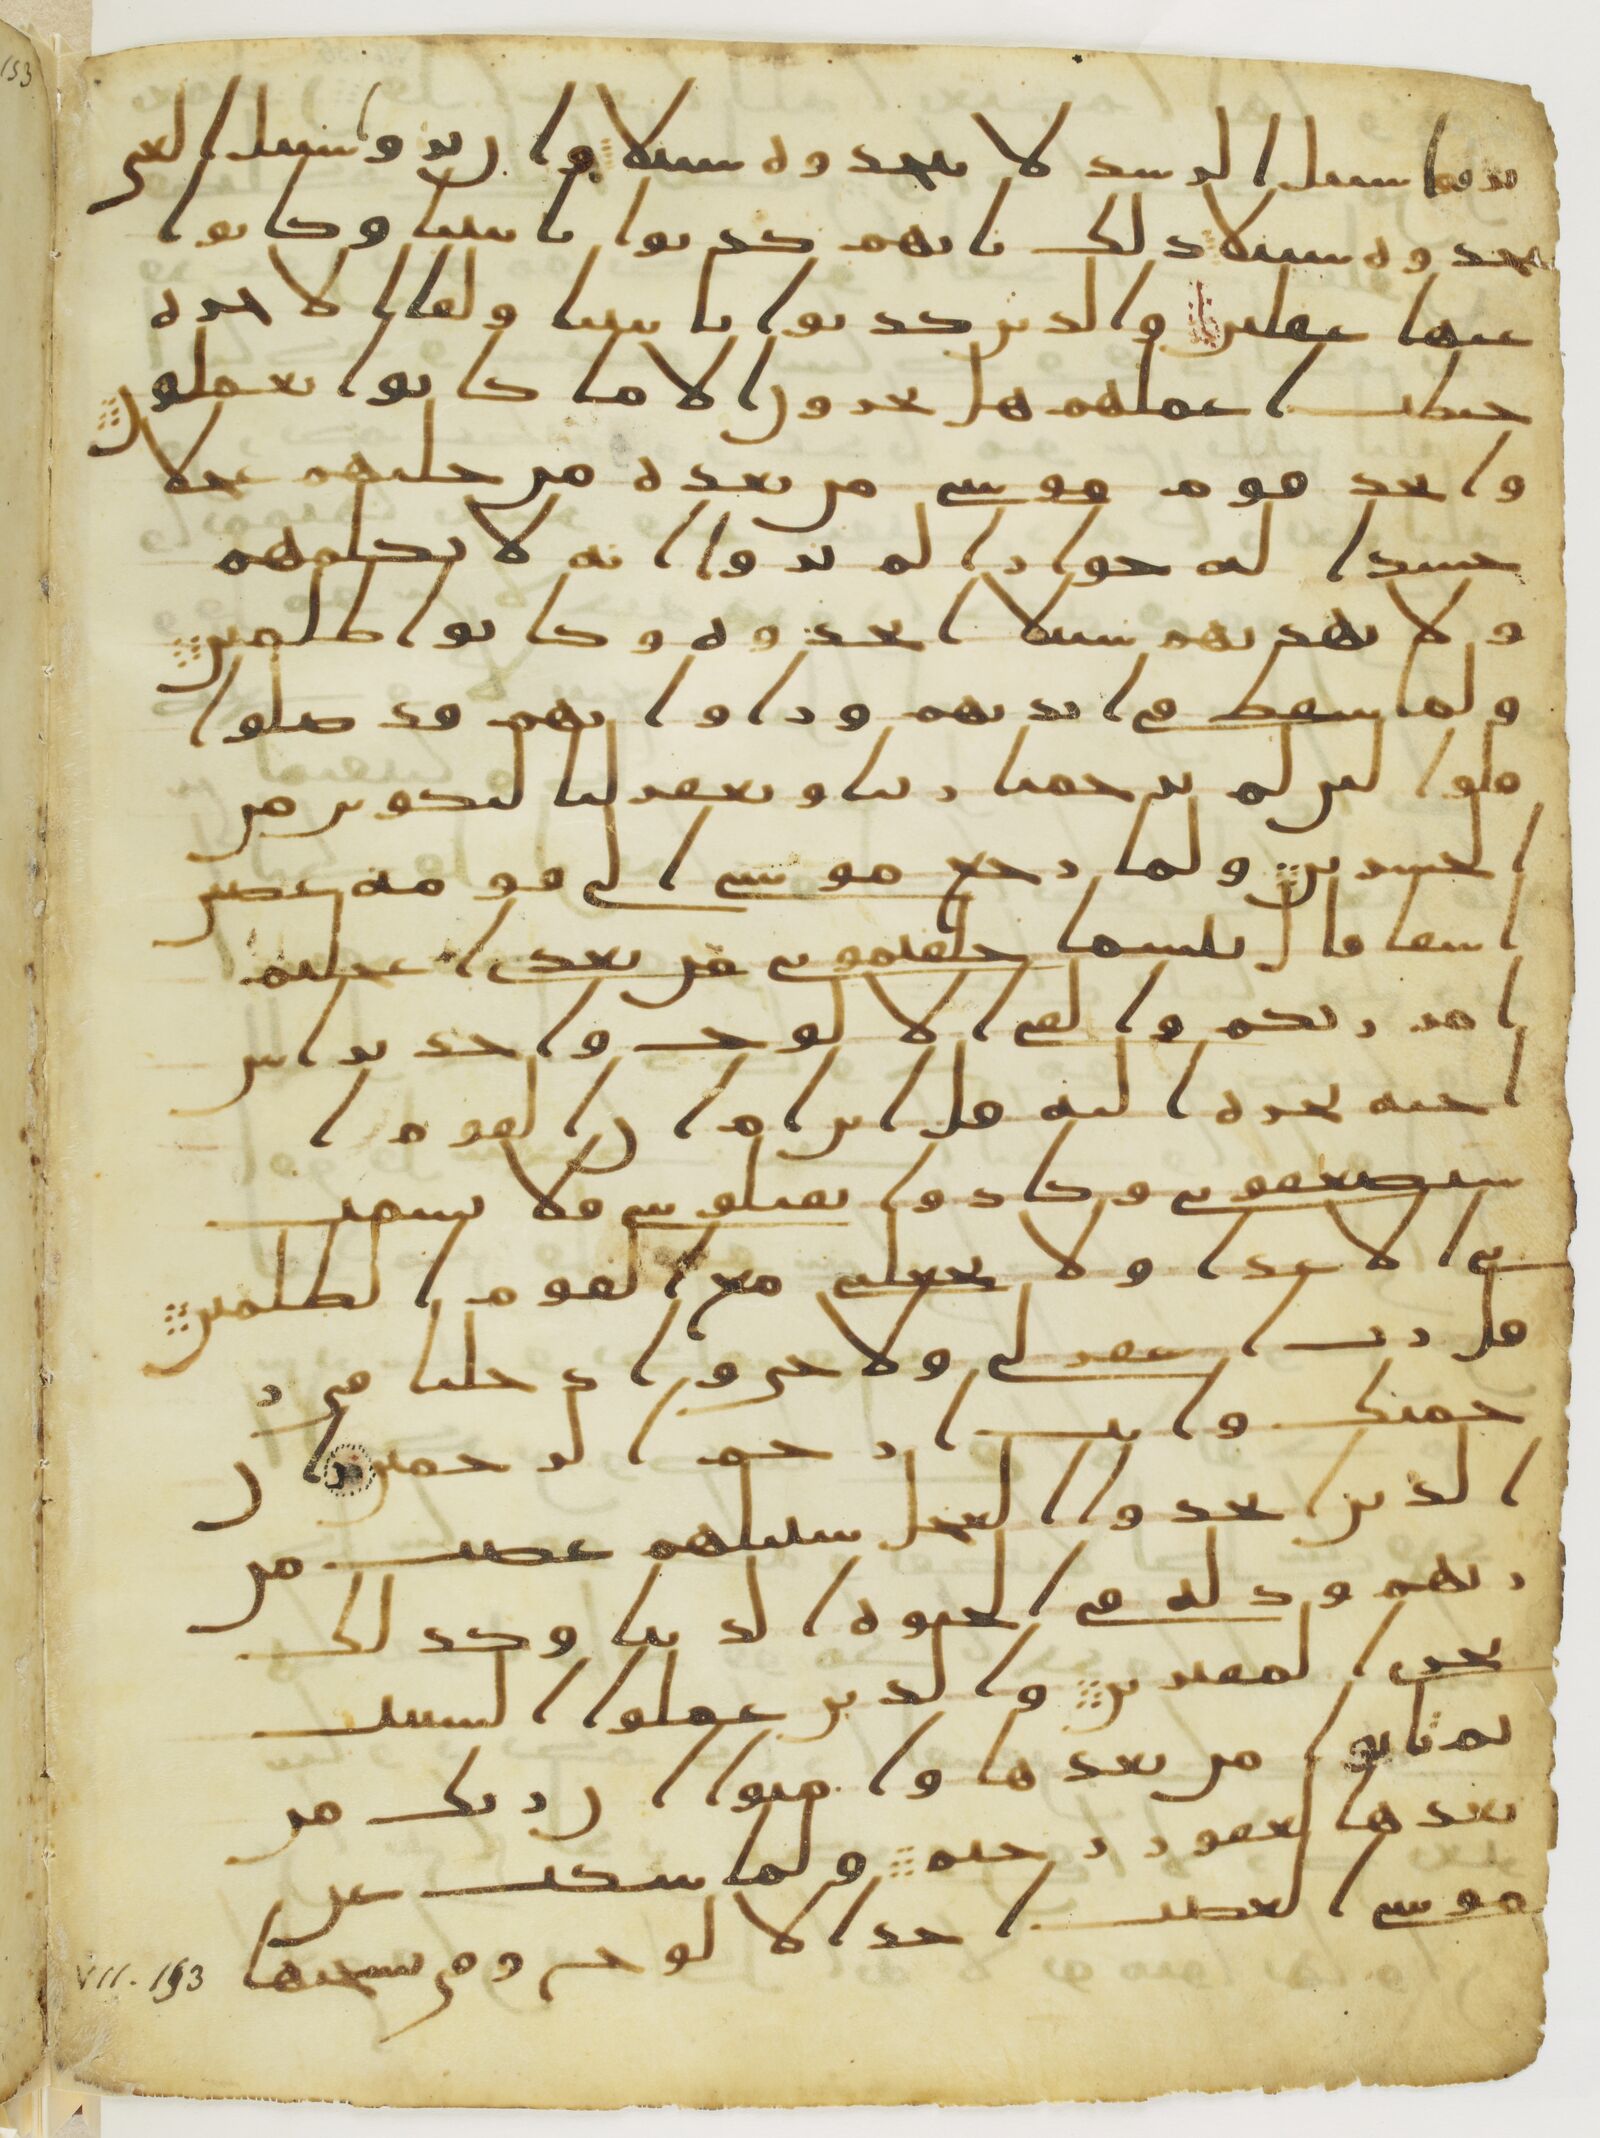 يروا سبيل الرشد لا يتخذوه سبيلا وان يروا سبيل الغى
يتخذوه سبيلا ذلك بانهم كذبوا بايتنا وكانوا
عنها غفلين والذين كذبوا بايتنا ولقا الاخره
حبطت اعملهم هل يجزون الا ما كانوا يعملون
واتخذ قوم موسى من بعده من حليهم عجلا
جسدا له خوار الم يروا انه لا يكلمهم
ولا يهديهم سبيلا اتخذوه وكانوا ظلمين
ولما سقط فى ايديهم وراوا انهم قد ضلوا
قلوا لين لم يرحمنا ربنا ويغفر لنا لنكونن من
الخسرين ولما رجع موسى الى قومه غضبن
اسفا قال بيسما خلفتمونى من بعدى اعجلتم
امر ربكم والقى الالوح واخذ براس
اخيه يجره اليه قل ابن ام ان القوم ا
ستضعفونى وكادوا يقتلوننى فلا تشمت
بى الاعدا ولا تجعلنى مع القوم الظلمين
قل رب اغفر لى ولاخى وادخلنا فى ر
حمتك وانت ارحم الرحمين ان
الذين اتخذوا العجل سينلهم غضب من
ربهم وذله فى الحيوه الدنيا وكذلك
نجزى المفترين والذين عملوا السييت
ثم تابوا من بعدها وامنوا ان ربك من
بعدها لغفور رحيم ولما سكت عن
موسى الغضب اخذ الالوح وفى نسختها
VII. 153
153